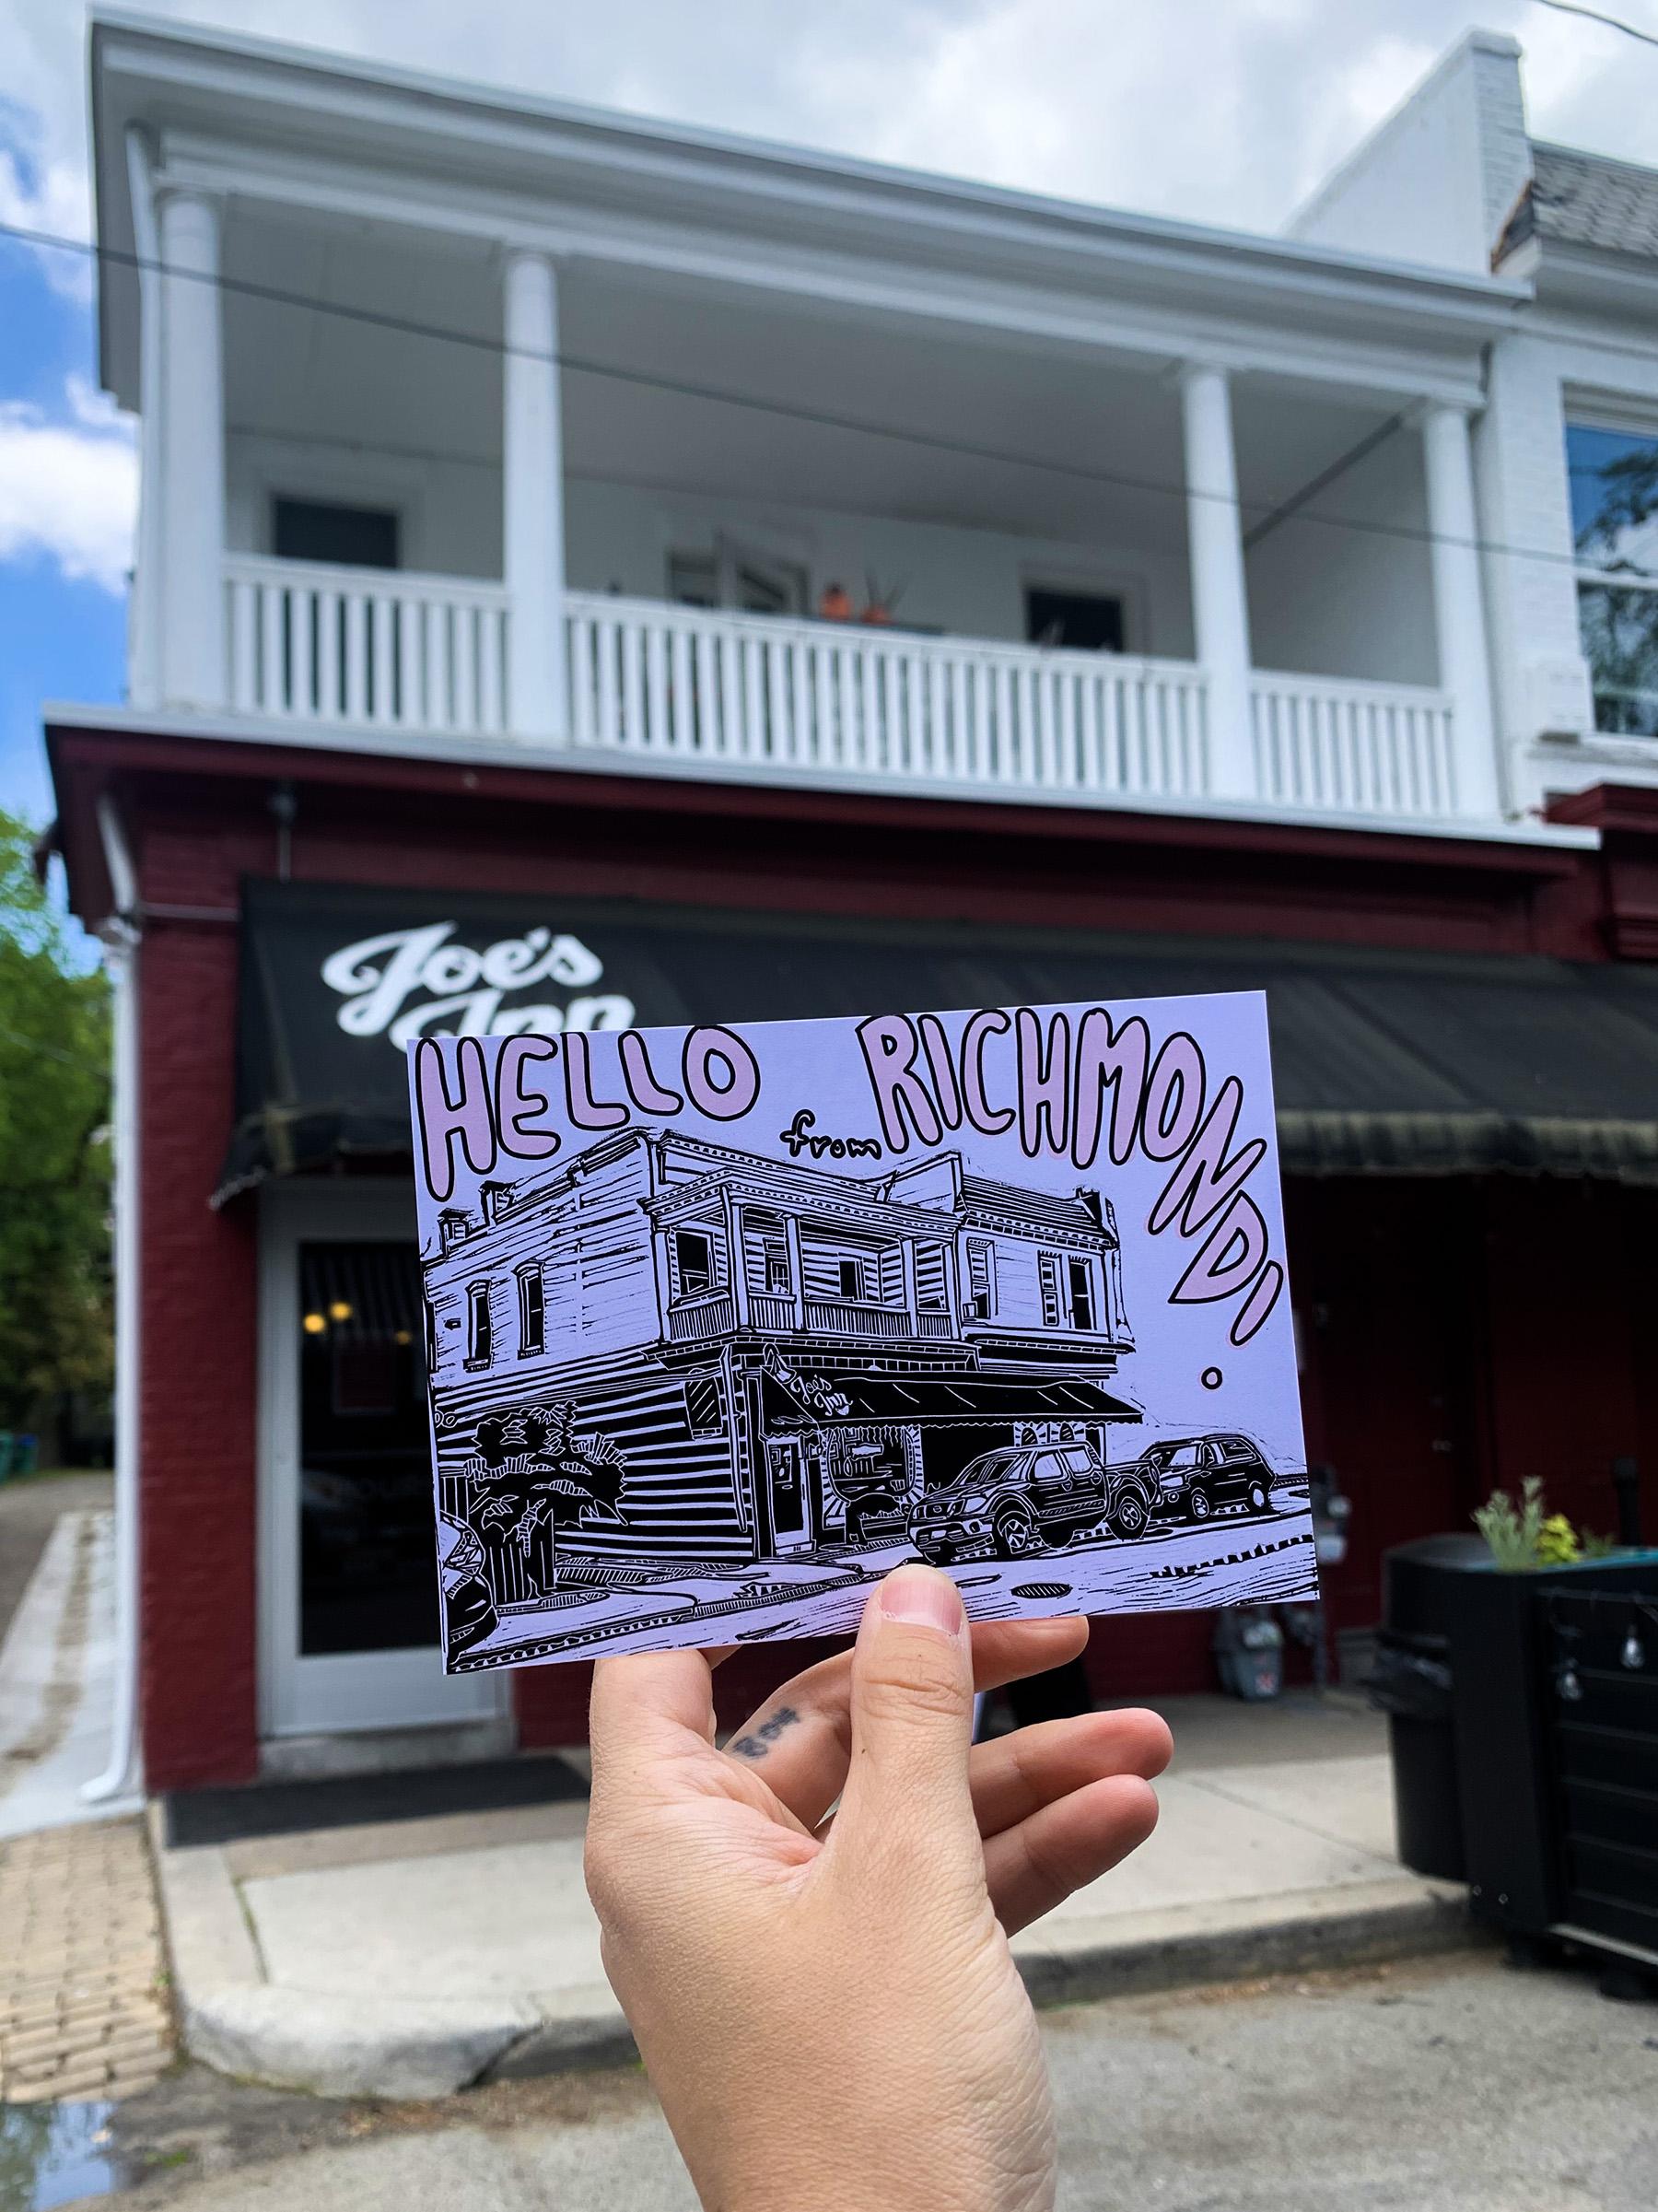 Joe's
Inn
HELLO
from RICHMOND!
Joe's
Inn